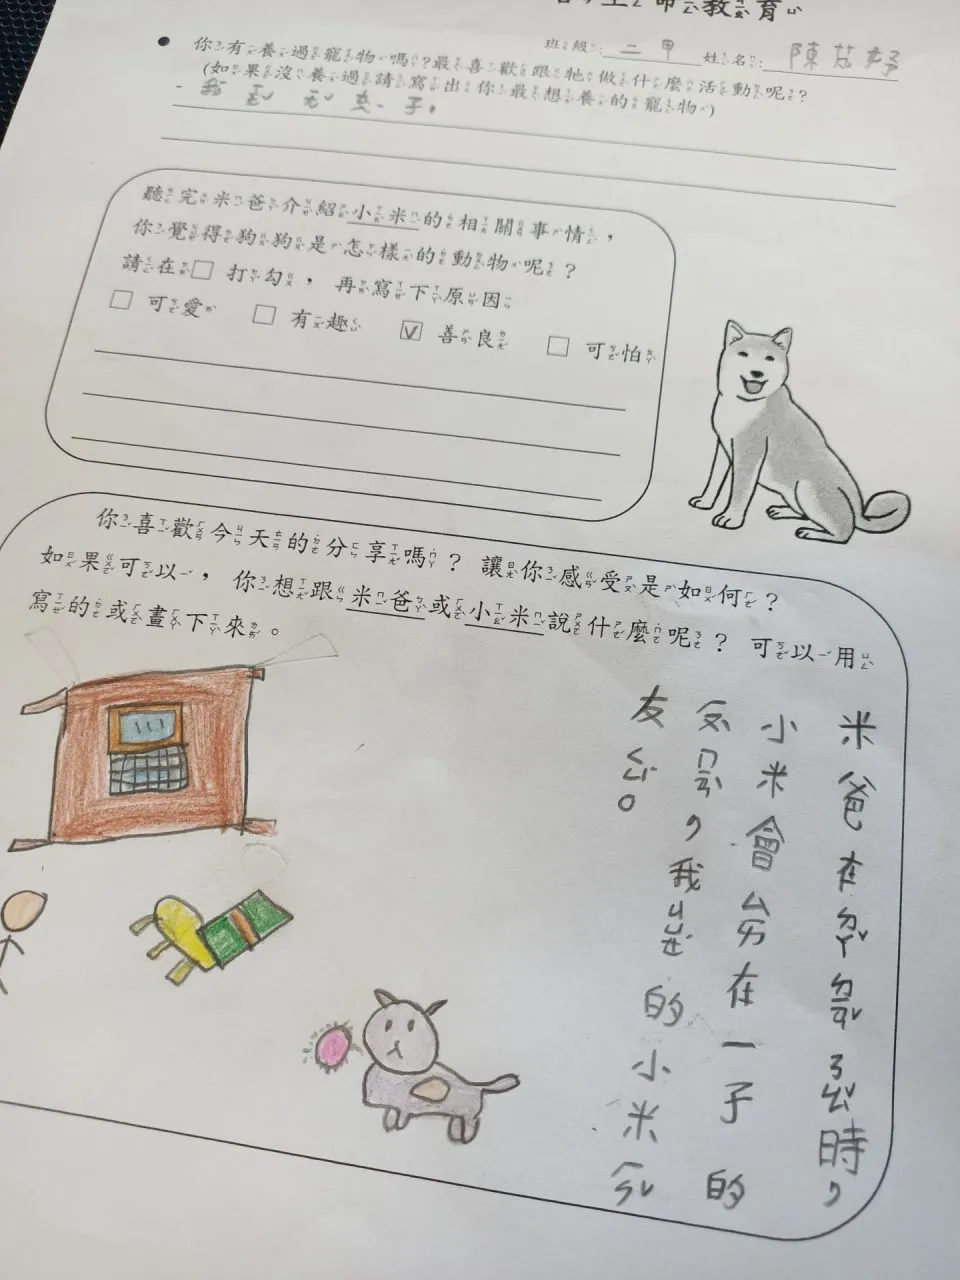 生命教育
班級：二甲 姓名：陳
你有養過寵物嗎？最喜歡跟牠做什麼活動呢？
(如果沒養過請寫出你最想養的寵物)
我 子。
聽完米爸介紹小米的相關事情，
你覺得狗狗是怎樣的動物呢？
請在□打勾，再寫下原因
□ 可愛 □ 有趣 ☑ 善良 □ 可怕
你喜歡今天的分享嗎？讓你感受是如何？
如果可以，你想跟米爸或小米說什麼呢？可以用
寫的或畫下來。
米爸在ㄉㄚˇㄉㄧㄢˇㄋㄠˇ時，
小米會 在一子的
ㄇㄧㄢˋ，我ㄐㄩㄝˊ的小米ㄏㄣˇ
友ㄑㄩˋ。